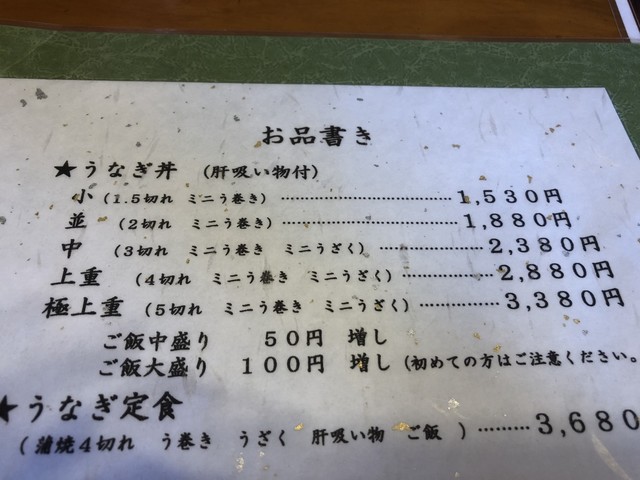 お品書き
★うなぎ丼 (肝吸い物付)
小 (1.5切れ ミニう巻き) ………………………… 1,530円
並 (2切れ ミニう巻き) ………………………… 1,880円
中 (3切れ ミニう巻き ミニうざく) ……………… 2,380円
上重 (4切れ ミニう巻き ミニうざく) …………… 2,880円
極上重 (5切れ ミニう巻き ミニうざく) ………… 3,380円
ご飯中盛り 50円 増し
ご飯大盛り 100円 増し (初めての方はご注意ください。
★うなぎ定食
(蒲焼4切れ う巻き うざく 肝吸い物 ご飯 ) ……… 3,680